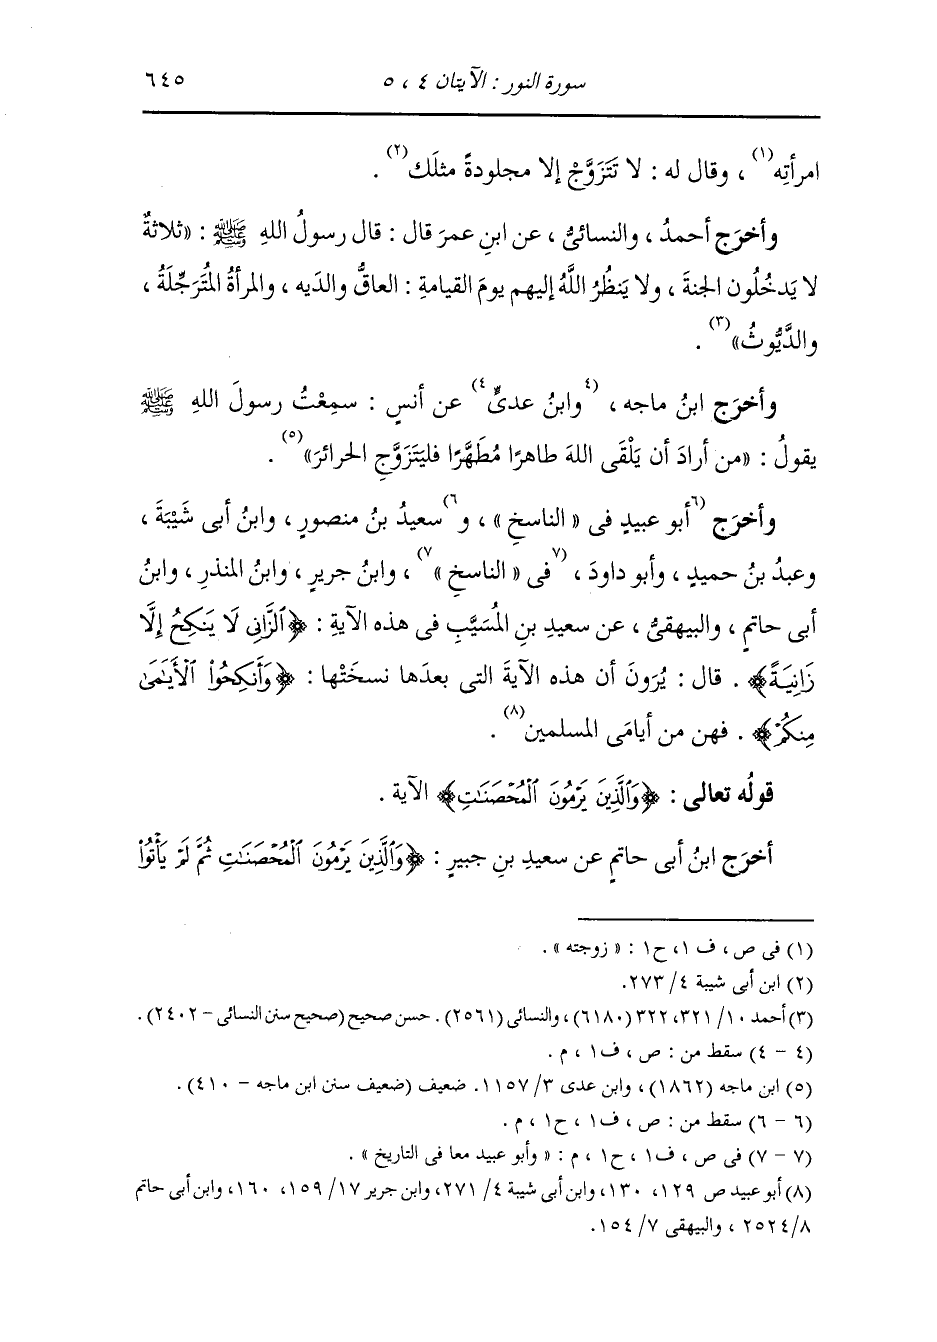 سورة النور : الآيتان ٤ ، ٥ ٦٤٥
امرأتِه(١) ، وقال له : لا تَتَزَوَّجْ إلا مجلودةً مثلَك(٢) .
وأخرَج أحمدُ ، والنسائىُّ ، عن ابنِ عمرَ قال : قال رسولُ اللهِ ﷺ : «ثلاثةٌ
لا يَدخُلُون الجنةَ ، ولا يَنظُرُ اللَّهُ إليهم يومَ القيامةِ : العاقُّ والدَيه ، والمرأةُ المُتَرَجِّلَةُ ،
والدَّيُّوثُ»(٣) .
وأخرَج ابنُ ماجه ، (٤وابنُ عدىٍّ٤) عن أنسٍ : سمِعْتُ رسولَ اللهِ ﷺ
يقولُ : «من أرادَ أن يَلْقَى اللهَ طاهرًا مُطَهَّرًا فليَتَزَوَّجِ الحرائرَ»(٥) .
وأخرَج (٦أبو عبيدٍ فى « الناسخِ » ، و٦)سعيدُ بنُ منصورٍ ، وابنُ أبى شَيْبَةَ ،
وعبدُ بنُ حميدٍ ، وأبو داودَ ، (٧فى « الناسخِ »٧) ، وابنُ جريرٍ ، وابنُ المنذرِ ، وابنُ
أبى حاتمٍ ، والبيهقىُّ ، عن سعيدِ بنِ المُسَيَّبِ فى هذه الآيةِ : ﴿ٱلزَّانِى لَا يَنكِحُ إِلَّا
زَانِيَةً﴾ . قال : يُرَونَ أن هذه الآيةَ التى بعدَها نسخَتْها : ﴿وَأَنكِحُواْ ٱلْأَيَٰمَىٰ
مِنكُمْ﴾ . فهن من أيامَى المسلمين(٨) .
قولُه تعالى : ﴿وَٱلَّذِينَ يَرْمُونَ ٱلْمُحْصَنَٰتِ﴾ الآية .
أخرَج ابنُ أبى حاتمٍ عن سعيدِ بنِ جبيرٍ : ﴿وَٱلَّذِينَ يَرْمُونَ ٱلْمُحْصَنَٰتِ ثُمَّ لَمْ يَأْتُواْ
(١) فى ص ، ف ١، ح١ : « زوجته » .
(٢) ابن أبى شيبة ٤/ ٢٧٣.
(٣) أحمد ١٠/ ٣٢١، ٣٢٢ (٦١٨٠) ، والنسائى (٢٥٦١) . حسن صحيح (صحيح سنن النسائى – ٢٤٠٢) .
(٤ – ٤) سقط من : ص ، ف١ ، م .
(٥) ابن ماجه (١٨٦٢) ، وابن عدى ٣/ ١١٥٧. ضعيف (ضعيف سنن ابن ماجه – ٤١٠) .
(٦ – ٦) سقط من : ص ، ف١ ، ح١ ، م .
(٧ – ٧) فى ص ، ف١ ، ح١ ، م : « وأبو عبيد معا فى التاريخ » .
(٨) أبو عبيد ص ١٢٩، ١٣٠، وابن أبى شيبة ٤/ ٢٧١، وابن جرير ١٧/ ١٥٩، ١٦٠، وابن أبى حاتم
٨/٢٥٢٤ ، والبيهقى ٧/ ١٥٤.